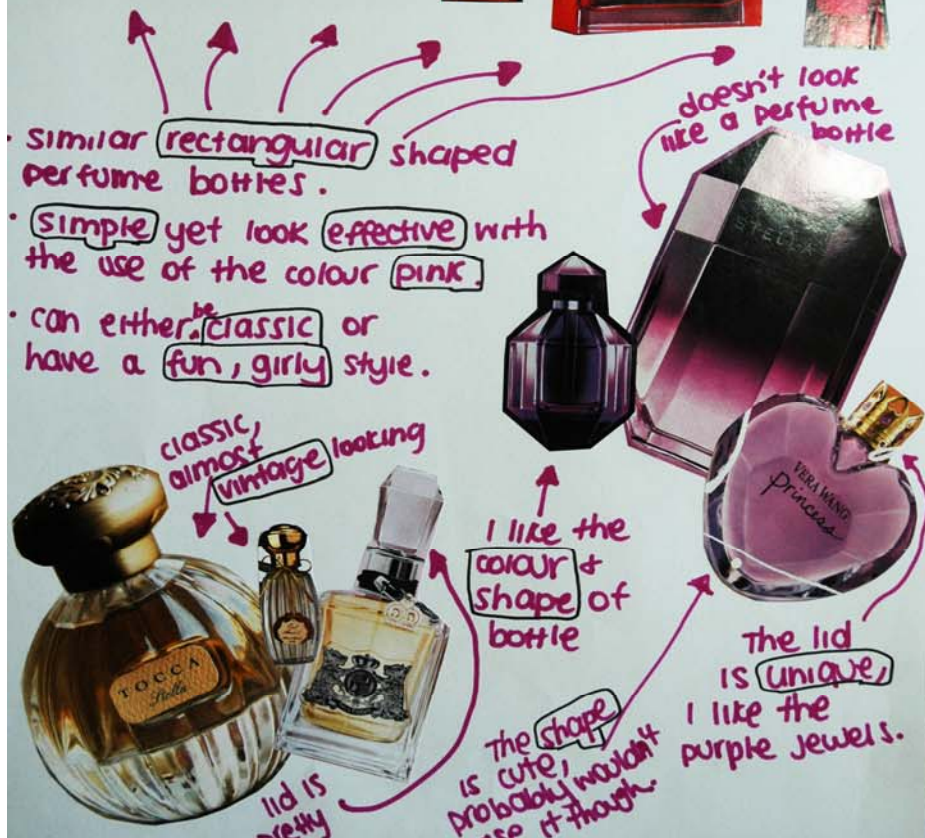 doesn't look
like a perfume
bottle
• similar rectangular shaped
perfume bottles.
• simple yet look effective with
the use of the colour pink.
• can either be classic or
have a fun, girly style.
classic,
almost
vintage looking
I like the
colour &
shape of
bottle
VERA WANG
Princess
TOCCA
Stella
The lid
is unique,
I like the
purple jewels.
The shape
is cute,
probably wouldn't
use it though.
lid is
pretty